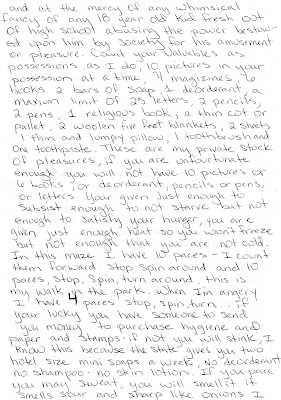 and at the mercy of any whimsical
fancy of any 18 year old kid fresh out
of high school abusing the power bestow-
ed upon him by society for his amusement
or pleasure. Count your valuables as
possessions, as I do, 10 pictures in your
possession at a time, 4 magizines, 6
books 2 bars of soap, 1 deoderant, a
maxium limit of 25 letters, 2 pencils,
2 pens, 1 religious book, a thin cot or
pallet, 2 woolen five feet blankets, 2 sheets
1 thin and lumpy pillow, 1 toothbrush and
one toothpaste. These are my private stock
of pleasures, if you are unfourtunate
enough you will not have 10 pictures or
6 books, or deorderant, pencils or pens,
or letters. Your given just enough to
subsist enough to not starve but not
enough to satisfy your hunger, you are
given just enough heat so you won't freeze
but not enough that you are not cold.
In this maze I have 10 paces - I count
them forward stop spin around and 10
paces, stop, spin, turn around, this is
my walk in the park. When I'm angry
I have 4 paces stop, spin, turn... if
your lucky you have someone to send
you money to purchase hygiene and
paper and stamps - if not you will stink, I
know this because the state gives you two
hotel size mini soaps a week, no deordorant
no shampoo - no skin lotion. If you pace
you may sweat, you will smell it it
smells sour and sharp like onions. I